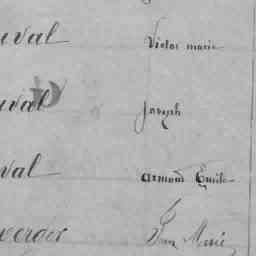 uval Victor marie
uval Joseph
val armand Emile
verger Jean Marie